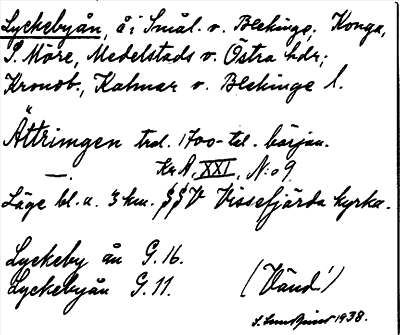 Lyckebyån, å i Smål. o. Blekinge; Konga,
S. Möre, Medelstads o. Östra hdr;
Kronob., Kalmar o. Blekinge l.
Ättrimgen trol. 1700-tal. början.
—. Kr A, XXI, N:o 9.
Läge bl.a. 3 km. SSV Vissefjärda kyrka.
Lyckeby ån G. 16.
Lyckebyån G. 11. (Vänd!)
1938.